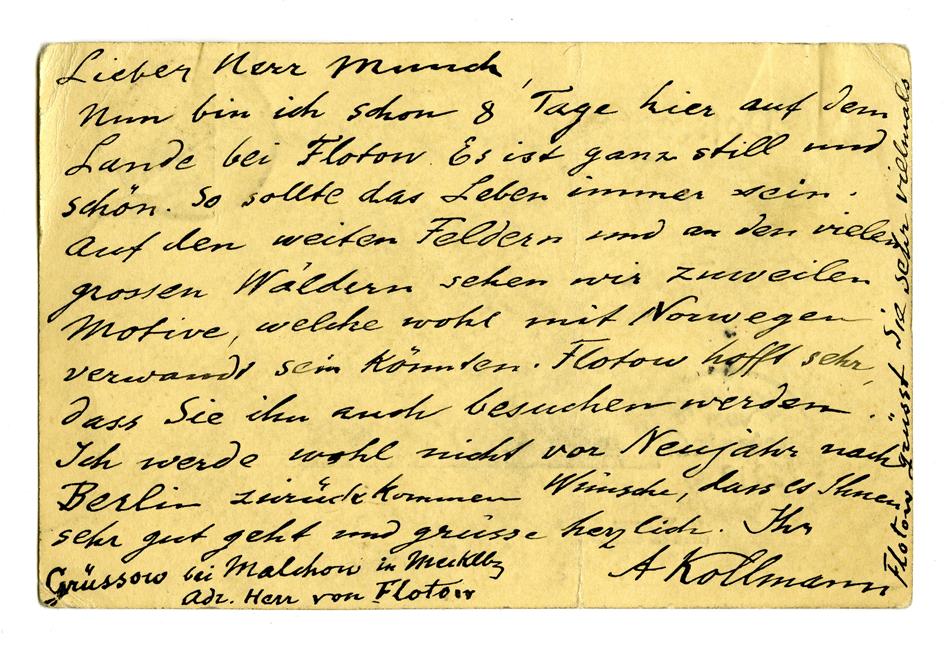 Lieber Herr Munch,
Nun bin ich schon 8 Tage hier auf dem
Lande bei Flotow. Es ist ganz still und
schön. So sollte das Leben immer sein.
Auf den weiten Feldern und an den vielen
grossen Wäldern sehen wir zuweilen
Motive, welche wohl mit Norwegen
verwandt sein könnten. Flotow hofft sehr,
dass Sie ihn auch besuchen werden.
Ich werde wohl nicht vor Neujahr nach
Berlin zurückkommen Wünsche, dass es Ihnen
sehr gut geht und grüsse herzlich. Ihr
A Kollmann
Grüssow bei Malchow in Mecklbg
Adr. Herr von Flotow
Flotow grüsst Sie sehr vielmals